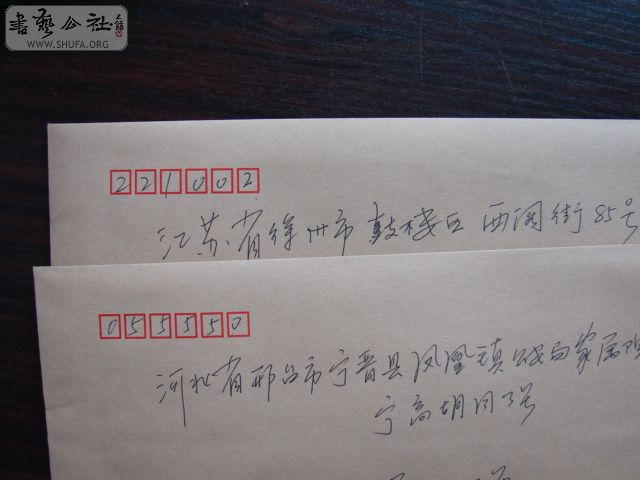 書藝公社
WWW.SHUFA.ORG
221002
江苏省徐州市鼓楼区 西阁街85号
055550
河北省邢台市宁晋县凤凰镇 局家属院
宁高胡同3号